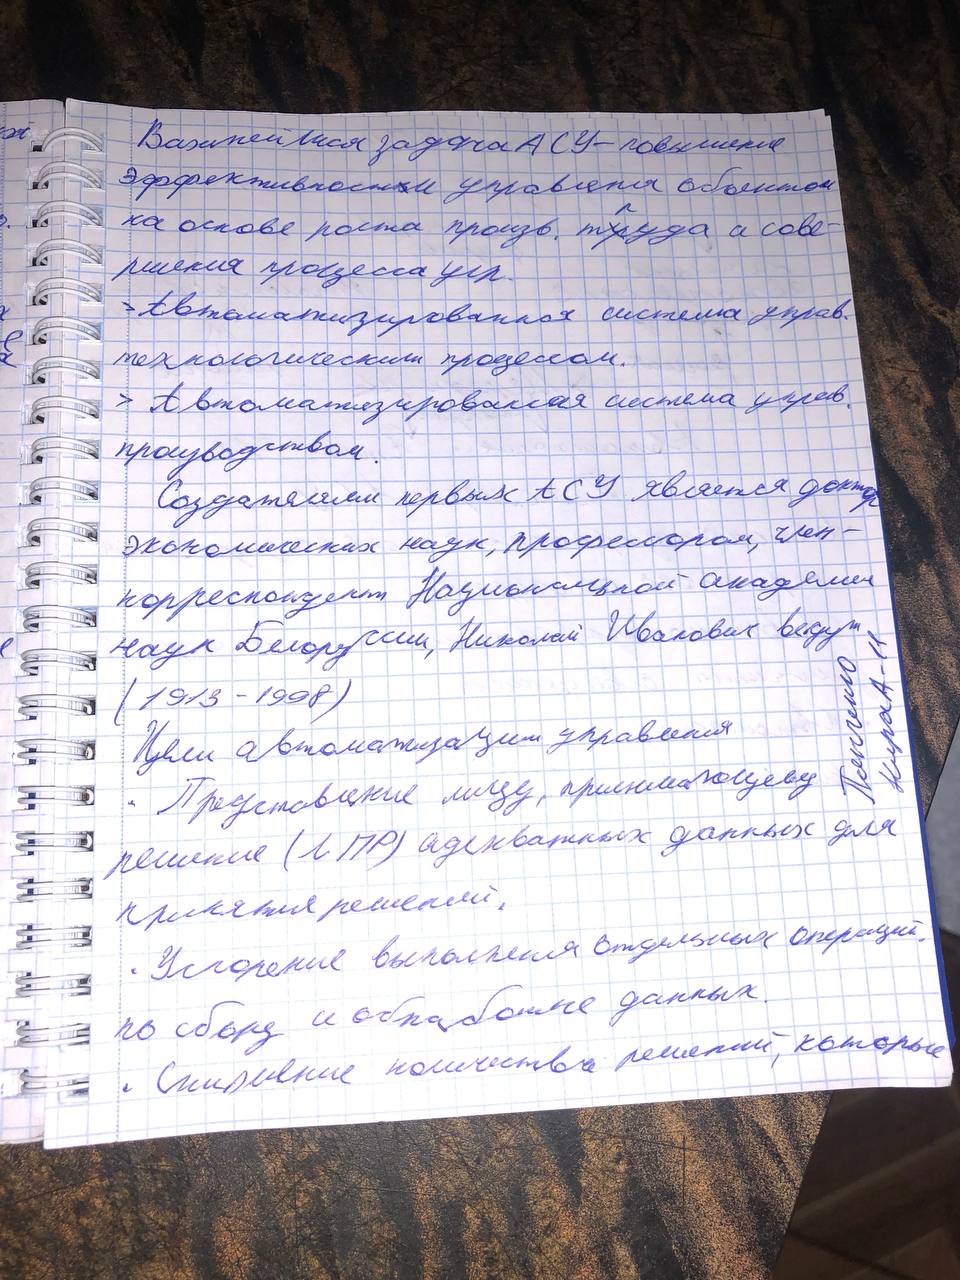 Важнейшая задача АСУ - повышение
эффективности управления объектом
на основе роста произв. труда и сове-
ршения процесса упр.
> Автоматизированная система управ.
технологическим процессом.
> Автоматизированная система управ.
производством.
Создателем первых АСУ является доктор
экономических наук, профессором, член-
корреспондент Национальной академии
наук Белоруссии, Николай Иванович Ведут
(1913 - 1998)
Цели автоматизации управления
· Представление лицу, принимающему
решение (ЛПР) адекватных данных для
принятия решений.
· Ускорение выполнения отдельных операций.
по сбору и обработке данных.
· Снижение количества решений, которые
Панченко
А-11